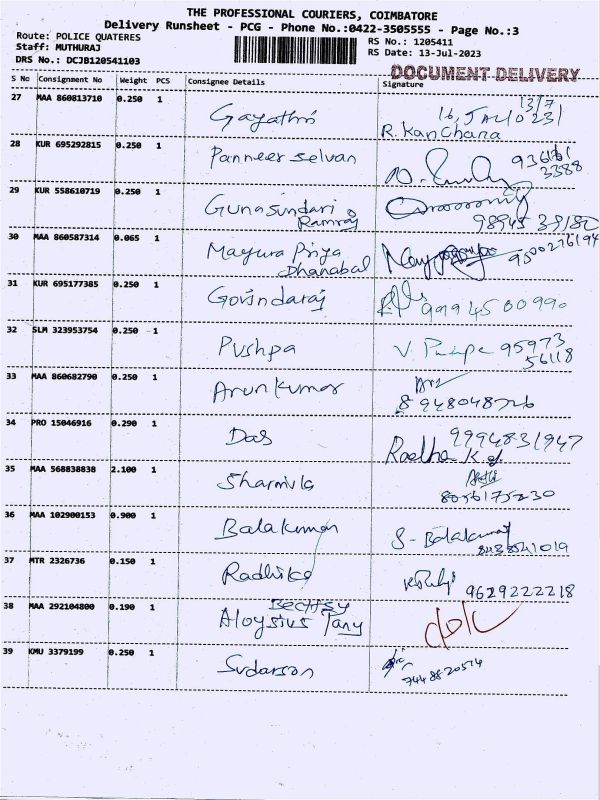 THE PROFESSIONAL COURIERS, COIMBATORE
Delivery Runsheet - PCG - Phone No.:0422-3505555 - Page No.:3
Route: POLICE QUATERES
RS No.: 1205411
Staff: MUTHURAJ
RS Date: 13-Jul-2023
DRS No.: DCJB120541103
DOCUMENT DELIVERY
S No Consignment No Weight PCS Consignee Details Signature
27 MAA 860813710 0.250 1 Gayathri R. Kanchana
28 KUR 695292815 0.250 1 Panneer Selvan
29 KUR 558610719 0.250 1 Gunasundari
Ramraj
30 MAA 860587314 0.065 1 Mayura Priya 9500276194
Dhanabal
31 KUR 695177385 0.250 1 Govindaraj 9994500990
32 SLM 323953754 0.250 1 Pushpa V. 95973
56118
33 MAA 860682790 0.250 1 Arunkumar
34 PRO 15046916 0.290 1 Das 9994831947
Radha K.
35 MAA 568838838 2.100 1 Sharmila
8056175230
36 MAA 102900153 0.900 1 Balakumar S. Balakumar
37 MTR 2326736 0.150 1 Radhika 9629222218
38 MAA 292104800 0.190 1 Aloysius Tany
39 KMU 3379199 0.250 1 Sudarson